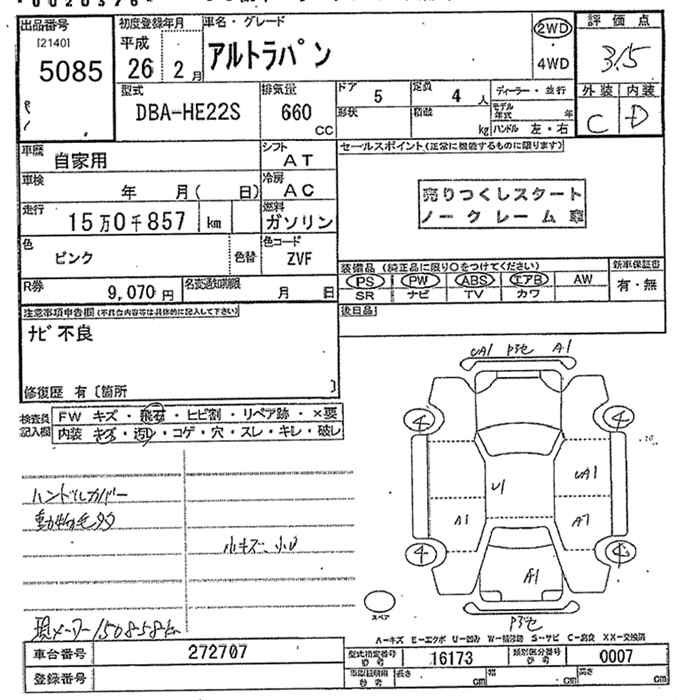 出品番号 初度登録年月 車名・グレード 評価点
[2140]
5085
平成
26 2月
アルトラパン
2WD
4WD
3.5
外装 内装
C D
型式
DBA-HE22S
排気量
660
CC
ドア 5
定員 4 人
ディーラー・並行
形状
積載 kg
モデル年式 年
ハンドル 左・右
車歴 自家用
シフト AT
セールスポイント(正常に機能するものに限ります)
車検 年 月( 日)
冷房 AC
売りつくしスタート
ノークレーム車
走行 15万0千857 km
燃料 ガソリン
色 ピンク 色替
色コード ZVF
装備品(純正品に限り○をつけてください)
新車保証書
PS PW ABS エアB AW
有・無
SR ナビ TV カワ
R券 9,070円
名変通知期限 月 日
後日品
注意事項申告欄(不具合内容等は具体的に記入して下さい)
ナビ不良
修復歴 有〔箇所 〕
検査員記入欄
FW キズ・飛石・ヒビ割・リペア跡・×要
内装 キズ・汚レ・コゲ・穴・スレ・キレ・破レ
UA1 A1
4 4
UA1
U1
A1 A1
4 4
A1
ハンドルカバー
動物毛多
小キズ、小U
スペア
現メーター150858km
A-キズ E-エクボ U-凹み W-補修跡 S-サビ C-腐食 XX-交換済
車台番号 272707
型式指定番号 16173
類別区分番号 0007
登録番号
長さ cm 幅 cm 高さ cm